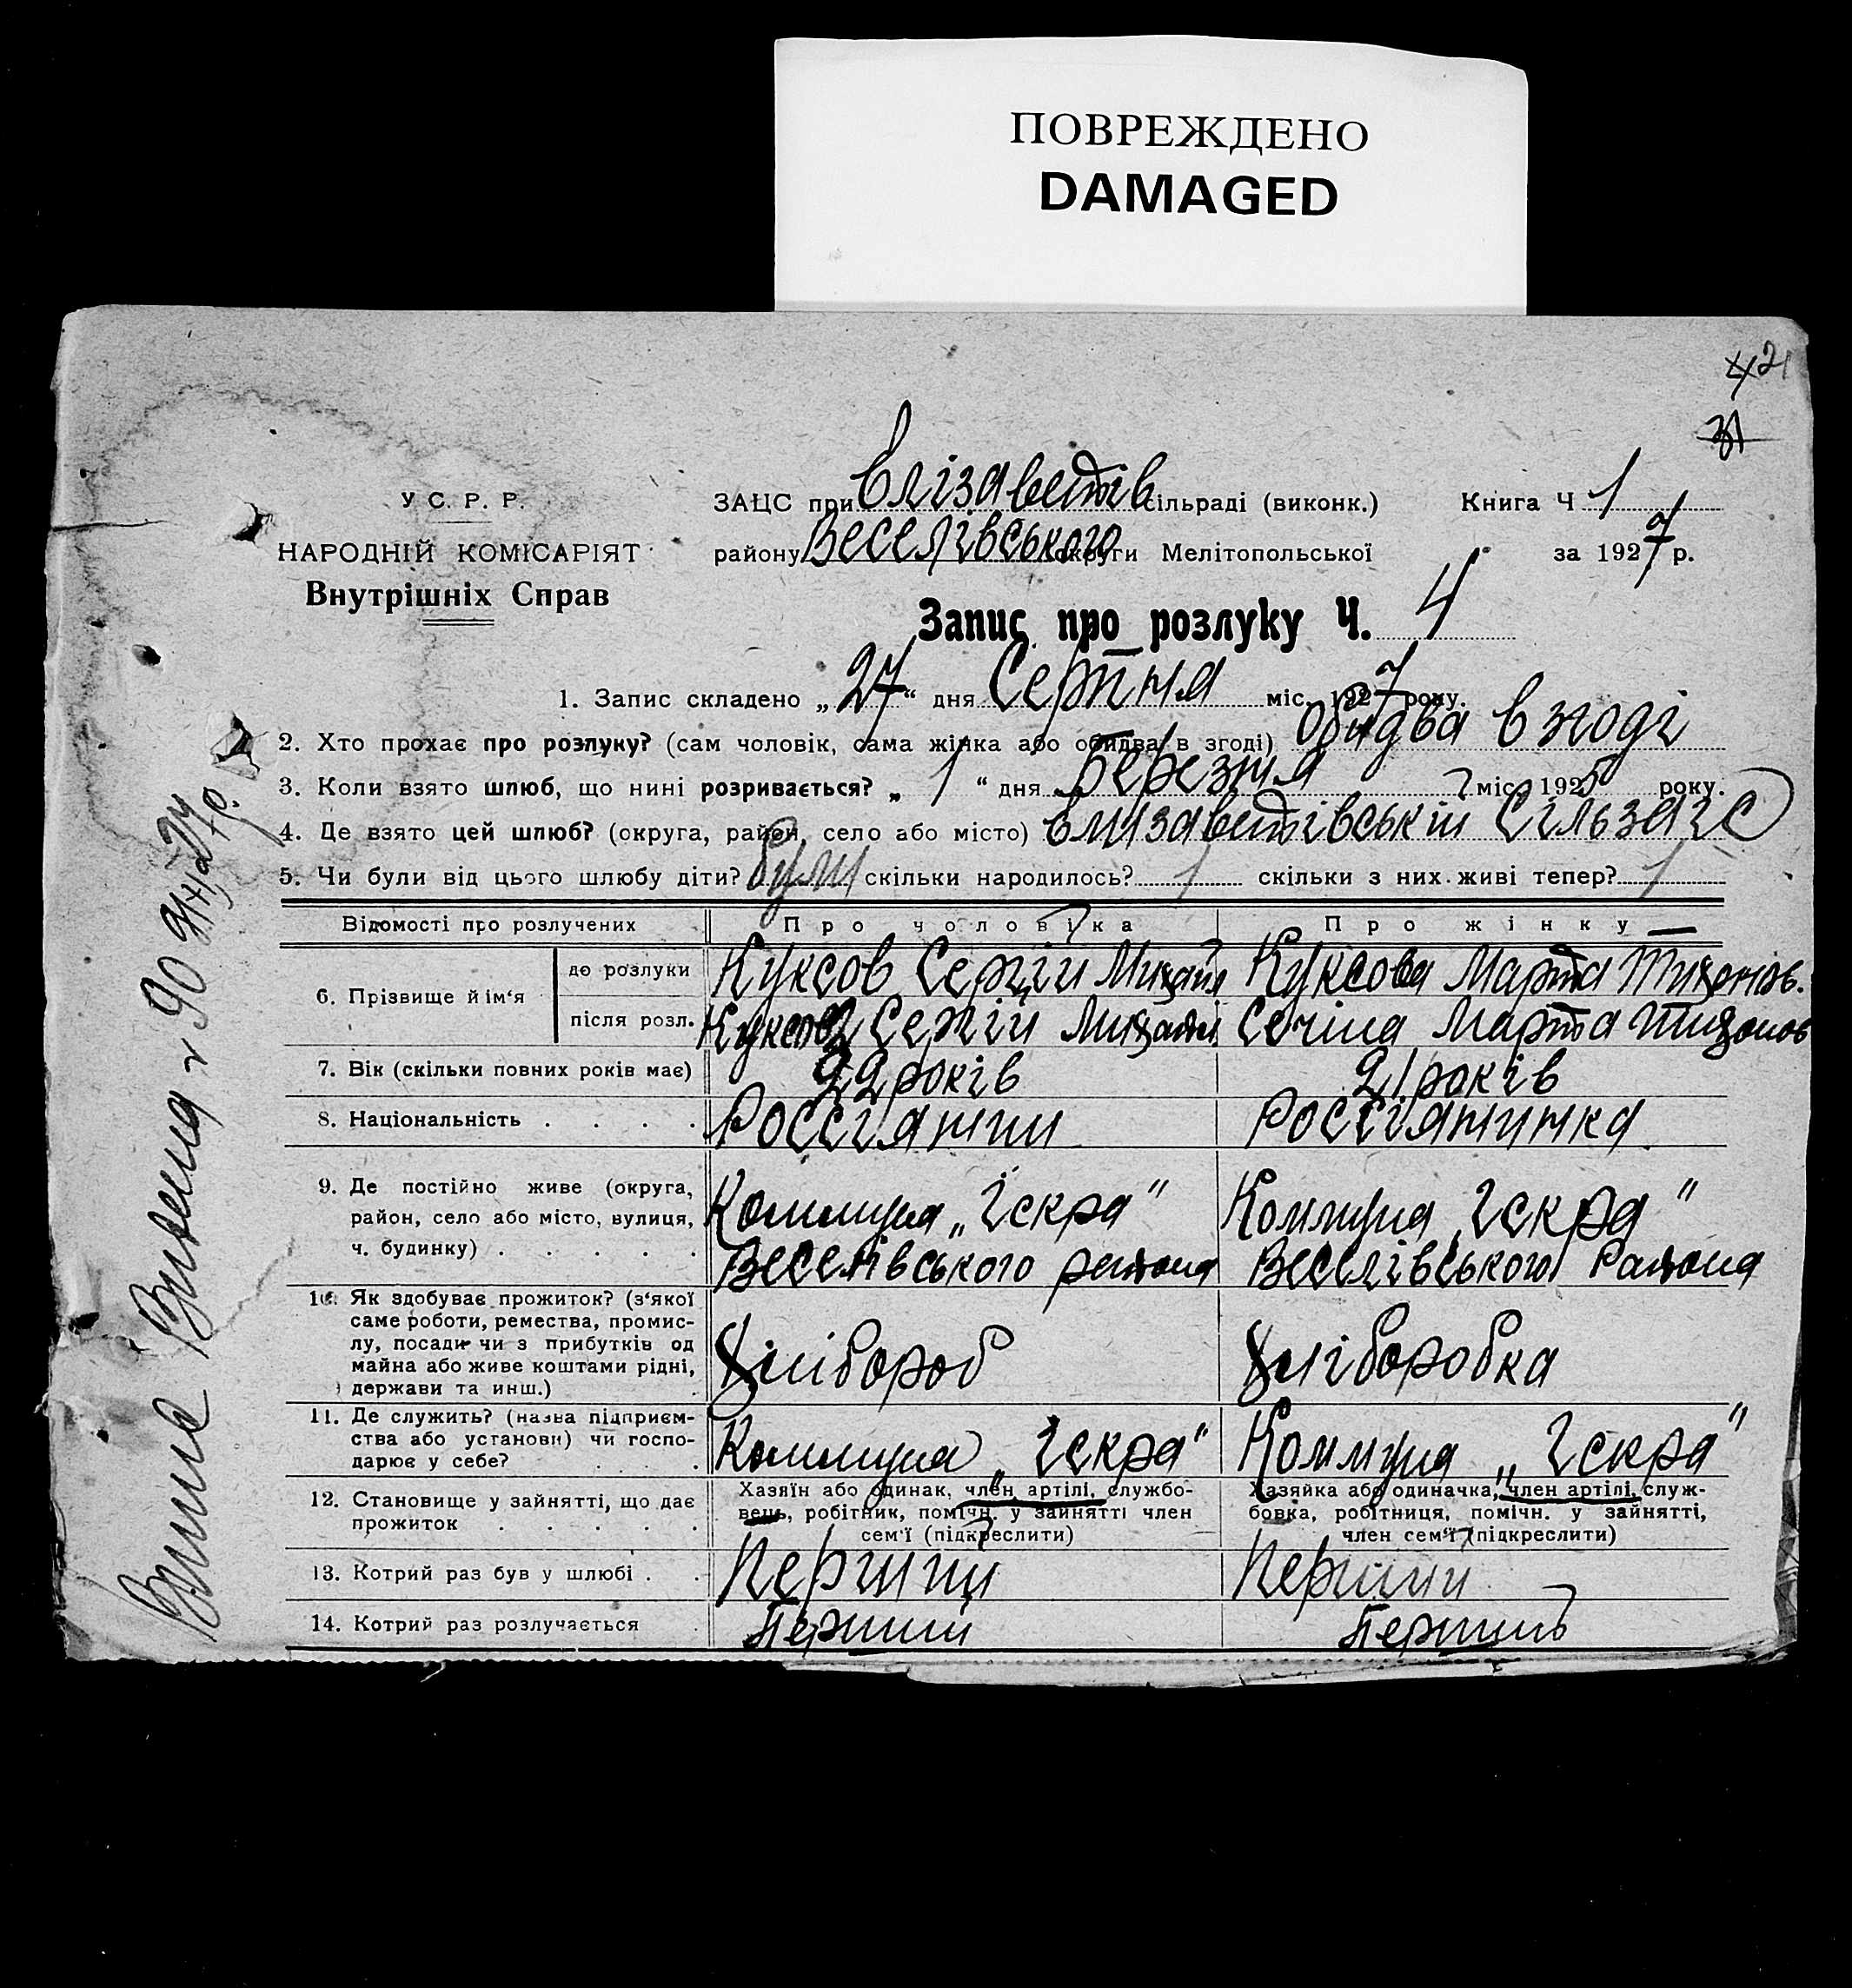 ПОВРЕЖДЕНО
DAMAGED
42
31
У С. Р. Р.
НАРОДНІЙ КОМІСАРІЯТ
Внутрішніх Справ
ЗАЦС при Єлізаветів сільраді (виконк.) Книга Ч 1
району Веселівського округи Мелітопольської за 1927 р.
Запис про розлуку Ч. 4
1. Запис складено „27“ дня Серпня міс. 1927 року.
2. Хто прохає про розлуку? (сам чоловік, сама жінка або обидва в згоді) Обидва в згоді
3. Коли взято шлюб, що нині розривається? „1“ дня Березня міс. 1925 року.
4. Де взято цей шлюб? (округа, район, село або місто) Єлизаветівській Сільзагс
5. Чи були від цього шлюбу діти? були скільки народилось? 1 скільки з них живі тепер? 1
Відомості про розлучених Про чоловіка Про жінку
6. Прізвище й ім‘я
до розлуки Куксов Сергій Михайл Куксова Марта Тихонов.
після розл. Куксов Сергій Михайл Сечіна Марта Тихонов
7. Вік (скільки повних років має) 22 років 21 років
8. Національність . . . . Россіянин Россіянинка
9. Де постійно живе (округа,
район, село або місто, вулиця,
ч. будинку) . . . . .
Коммуна „Іскра“ Коммуна „Іскра“
Веселівського района Веселівського Района
10. Як здобуває прожиток? (з‘якої
саме роботи, ремества, промис-
лу, посади чи з прибутків од
майна або живе коштами рідні,
держави та инш.)
Хліібороб Хліборобка
11. Де служить? (назва підприєм-
ства або установи) чи госпо-
дарює у себе? . . . .
Коммуна „Іскра“ Коммуна „Іскра“
12. Становище у зайнятті, що дає
прожиток . . . . .
Хазяїн або одинак, член артілі, службо-
вець, робітник, помічн. у зайнятті член
сем‘ї (підкреслити)
Хазяйка або одиначка, член артілі, служ-
бовка, робітниця, помічн. у зайнятті,
член сем‘ї (підкреслити)
13. Котрий раз був у шлюбі . . Перший Перший
14. Котрий раз розлучається . Перший Перший